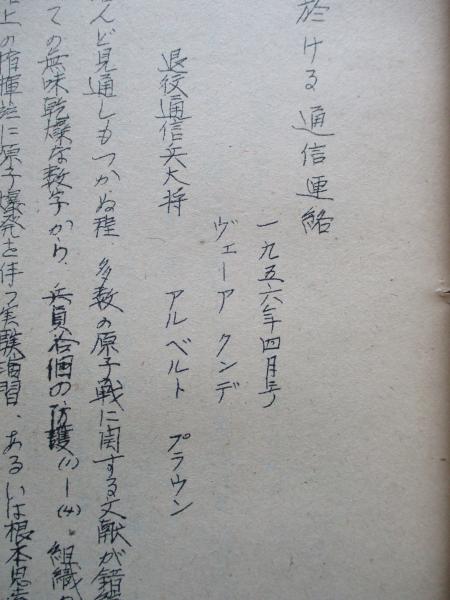 於ける通信連絡
一九五六年四月号
ヴェーア クンデ
退役通信兵大将 アルベルト プラウン
んど見通しもつかぬ程 多数の原子戦に関する文献が錯綜
ての無味乾燥な数字から、兵員各個の防護(1)ー(4)。組織
上の指揮法に原子爆発を伴う実験演習、あるいは根本思